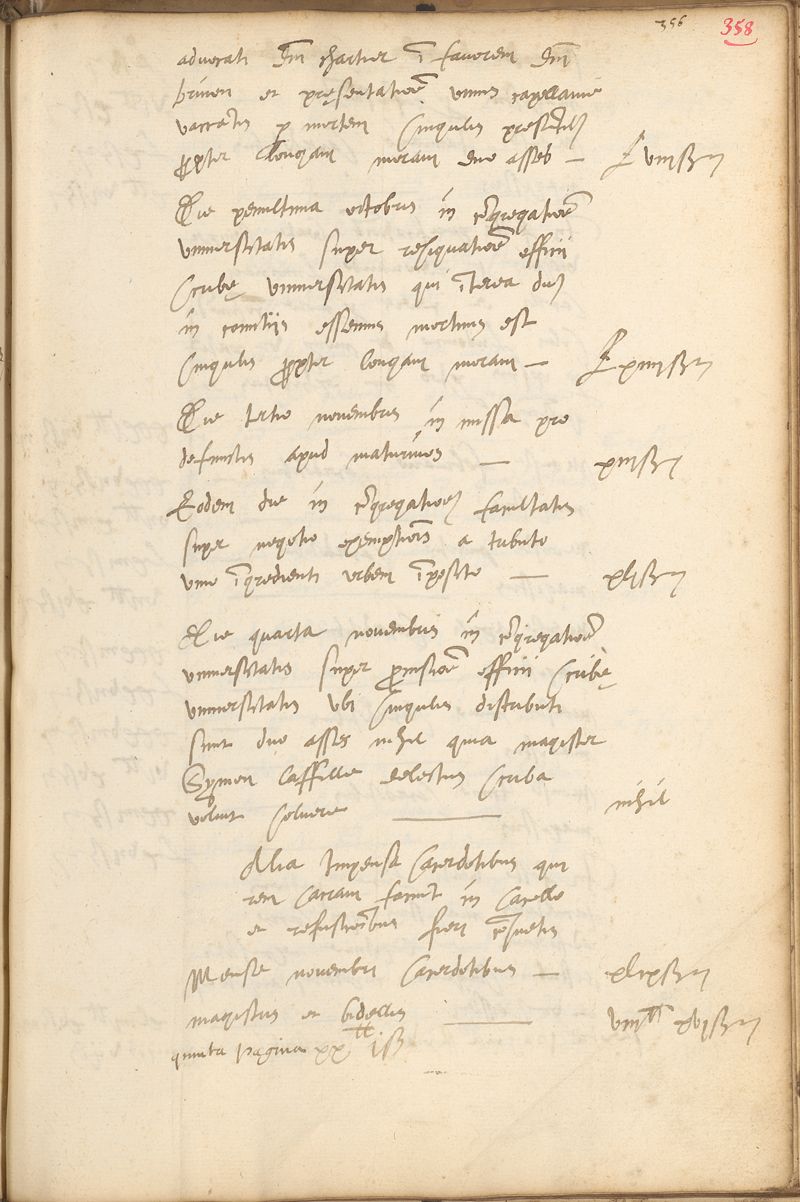 356 358
advocati dni chartier i favorem dni
et presentatione unius capellanie
vacantis p mortem singulis
propter longam moram duo asses —
Die penultima octobris in cogregatione
universitatis super resignatione officii
scribe universitatis qui iterea
in comitiis essemus mortuus est
singulis propter longam moram —
Die tertio novembris in missa pro
defunctis apud maturinos —
Eodem die in cogregatione facultatis
super negotio exemptionis a tributo
vino igredienti urbem iposito —
Die quarta novembris in cogregatione
universitatis super provisione officii scribe
universitatis ubi singulis distributi
sunt duo asses nihil quia magister
Symon delectus scriba
voluit solvere — nihil
Alia Impensa sacerdotibus qui
rem sacram faciunt in sacello
et refusionibus fieri cosuetis
Mense novembri sacerdotibus —
magistris et bidellis —
quinta pagina